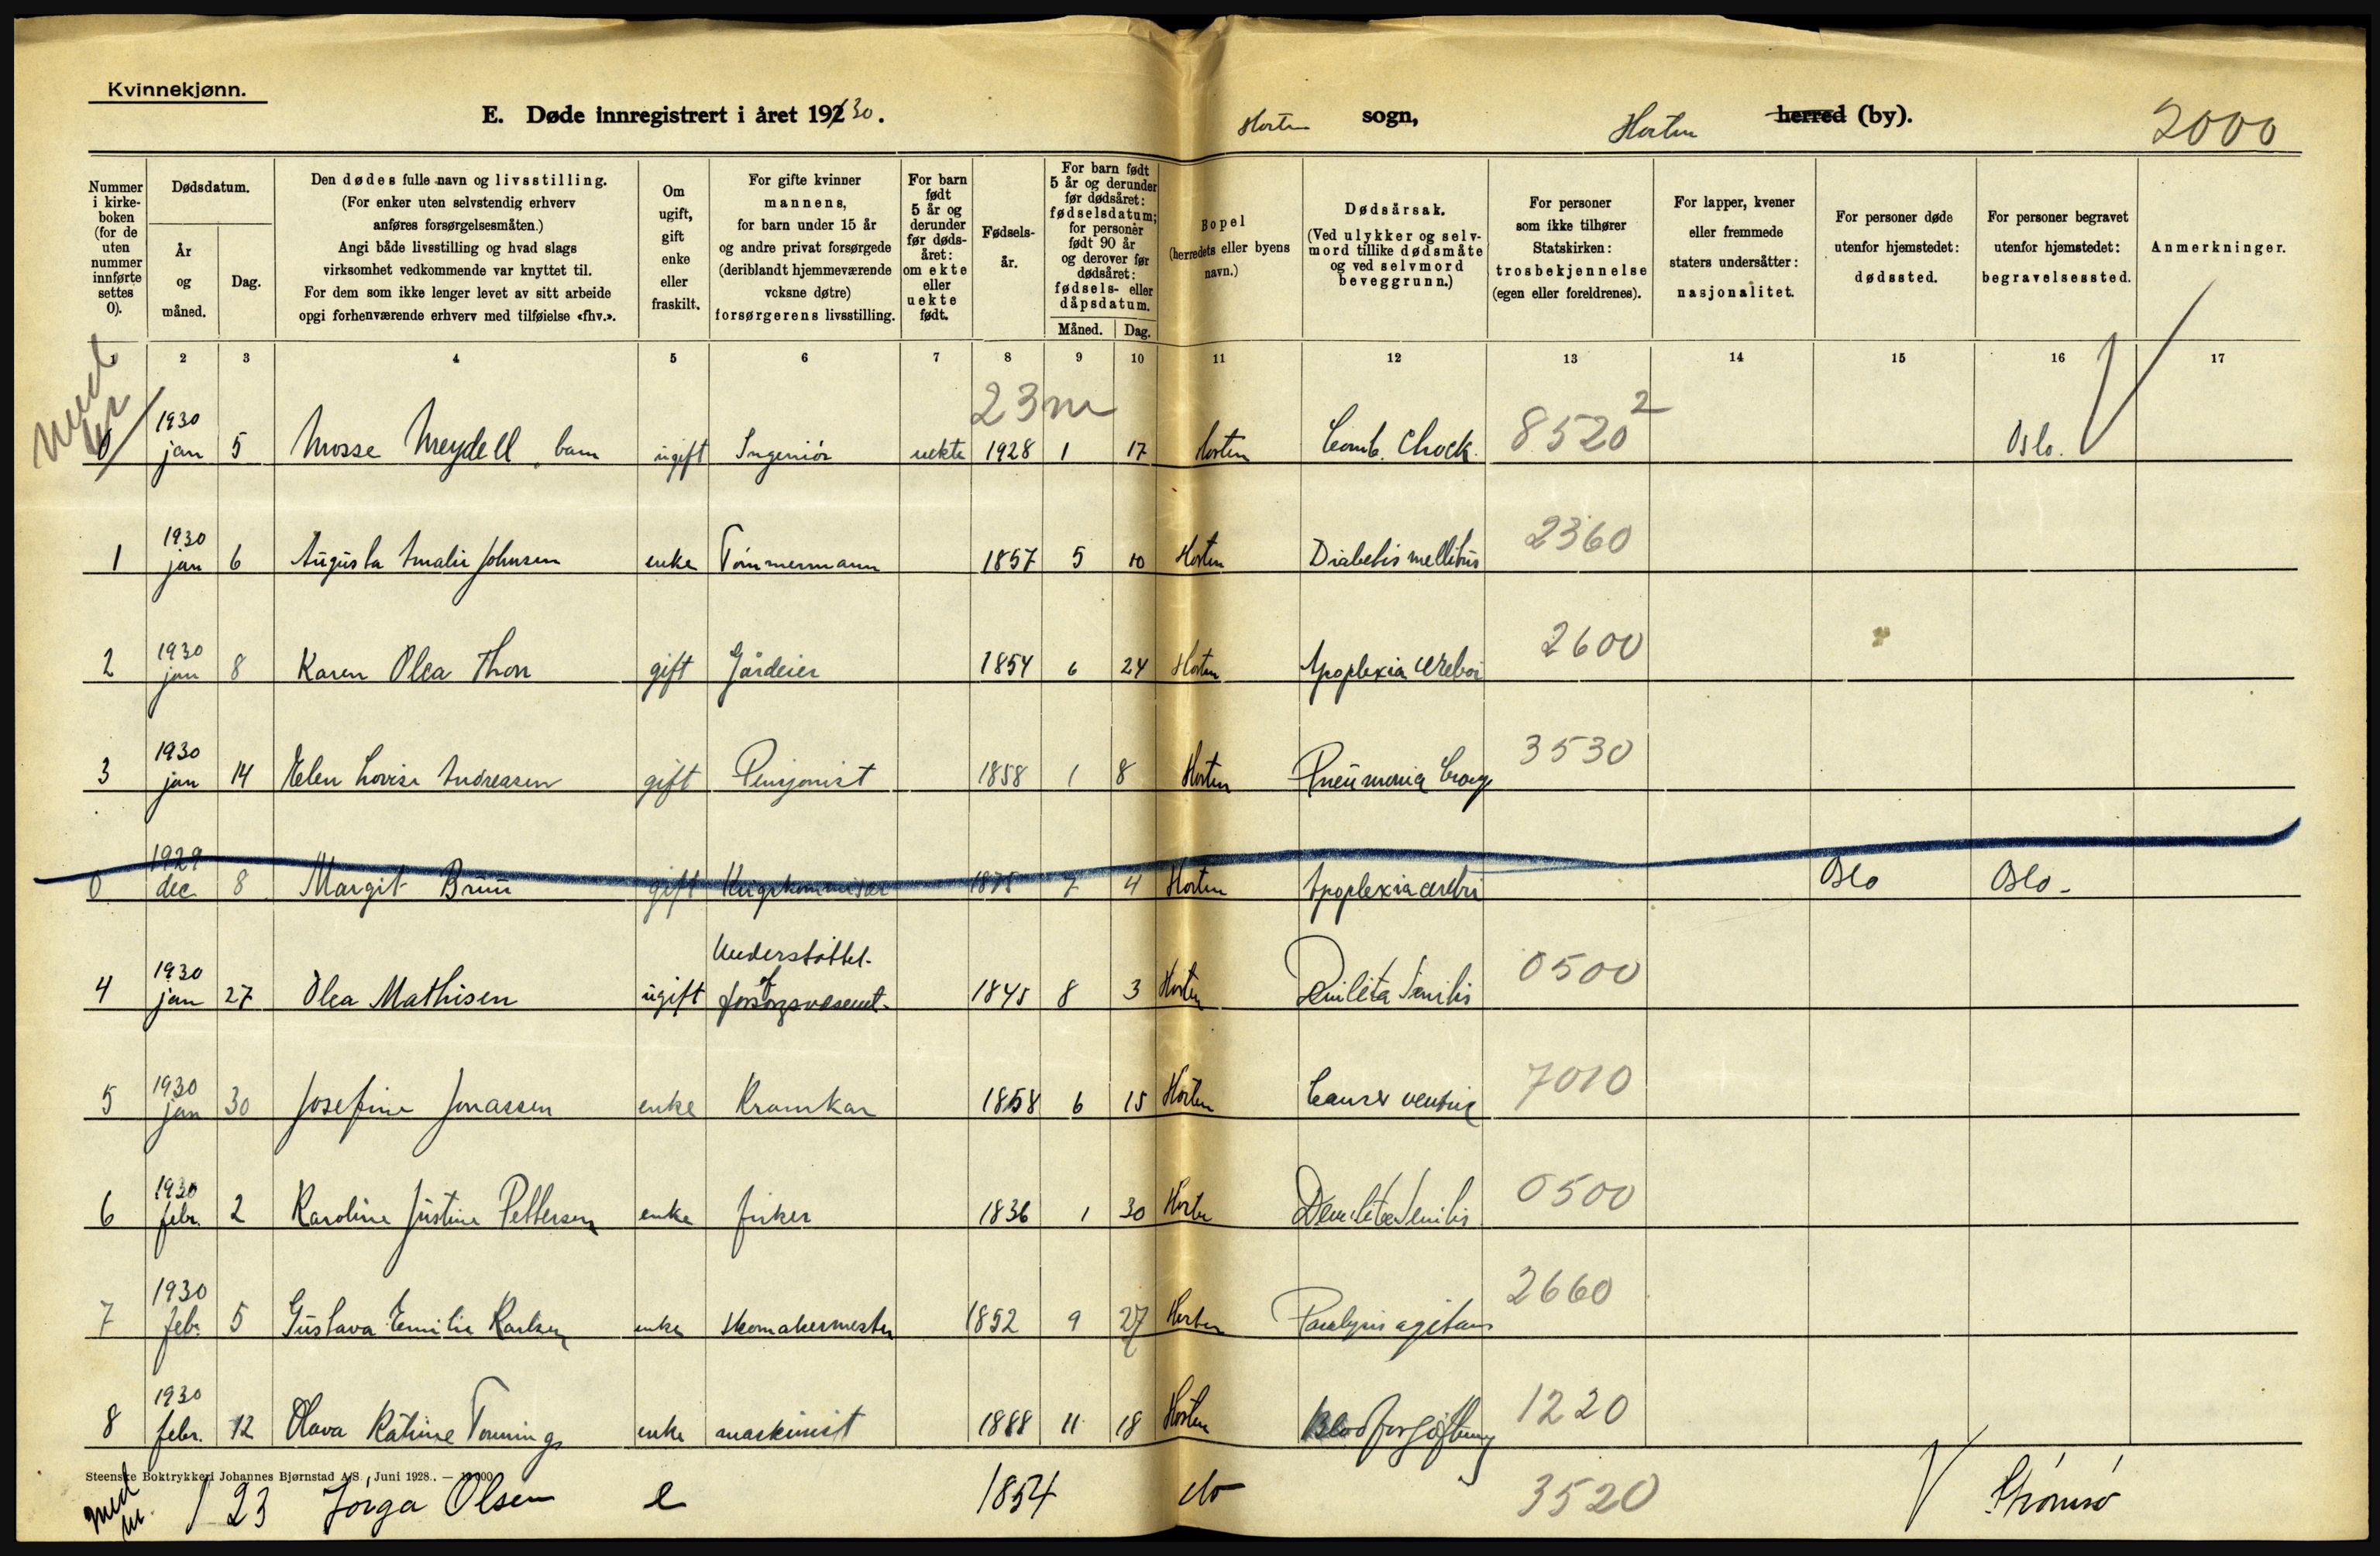 Kvinnekjønn.
E. Døde innregistrert i året 19230.
Horten sogn, Horten herred (by). 2000
Nummer i kirkeboken (for de uten nummer innførte settes 0).
Dødsdatum.
År og måned.
Dag.
Den dødes fulle navn og livsstilling.
(For enker uten selvstendig erhverv
anføres forsørgelsesmåten.)
Angi både livsstilling og hvad slags
virksomhet vedkommende var knyttet til.
For dem som ikke lenger levet av sitt arbeide
opgi forhenværende erhverv med tilføielse «fhv.».
Om ugift, gift enke eller fraskilt.
For gifte kvinner
mannens,
for barn under 15 år
og andre privat forsørgede
(deriblandt hjemmeværende
voksne døtre)
forsørgerens livsstilling.
For barn født 5 år og derunder før dødsåret: om ekte eller uekte født.
Fødselsår.
For barn født 5 år og derunder før dødsåret: fødselsdatum; for personer født 90 år og derover før dødsåret: fødsels- eller dåpsdatum.
Måned. Dag.
Bopel
(herredets eller byens
navn.)
Dødsårsak.
(Ved ulykker og selvmord tillike dødsmåte
og ved selvmord
beveggrunn.)
For personer
som ikke tilhører
Statskirken:
trosbekjennelse
(egen eller foreldrenes).
For lapper, kvener
eller fremmede
staters undersåtter:
nasjonalitet.
For personer døde
utenfor hjemstedet:
dødssted.
For personer begravet
utenfor hjemstedet:
begravelsessted.
Anmerkninger.
1 2 3 4 5 6 7 8 9 10 11 12 13 14 15 16 17
med nr
23 m
0 1930 jan 5 Mosse Meydell, barn ugift Ingeniør uekte 1928 1 17 Horten Comb. Chock. 8520 2 Oslo.
1 1930 jan 6 Augusta Amalie Johnsen enke Tømmermann 1857 5 10 Horten Diabetis mellitus 2360
2 1930 jan 8 Karen Olea Thon gift Gårdeier 1854 6 24 Horten Apoplexia cerebri 2600
3 1930 jan 14 Elen Lovise Andreasen gift Pensjonist 1858 1 8 Horten Pneumonia Croup 3530
0 1929 dec 8 Margit Bruu gift Krigskommisær 1875 7 4 Horten Apoplexia cerebri Oslo Oslo.
4 1930 jan 27 Olea Mathisen ugift Understøttet af forsorgsvæsenet. 1845 8 3 Horten Senilis 0500
5 1930 jan 30 Josefine Jonassen enke 1858 6 15 Horten Cancer ventric 7010
6 1930 febr. 2 Karoline Justine Pettersen enke fisker 1836 1 30 Horten Senilis 0500
7 1930 febr. 5 Gustava Emilie Karlsen enke skomakermester 1852 9 27 Horten Paralysis agitans 2660
8 1930 febr. 12 Olava Katrine Tønnings enke maskinist 1888 11 18 Horten Blodforgiftning 1220
Steenske Boktrykkeri Johannes Bjørnstad A/S., Juni 1928. —
med nr. 1 23 Jørga Olsen e 1854 do 3520 Strømsø